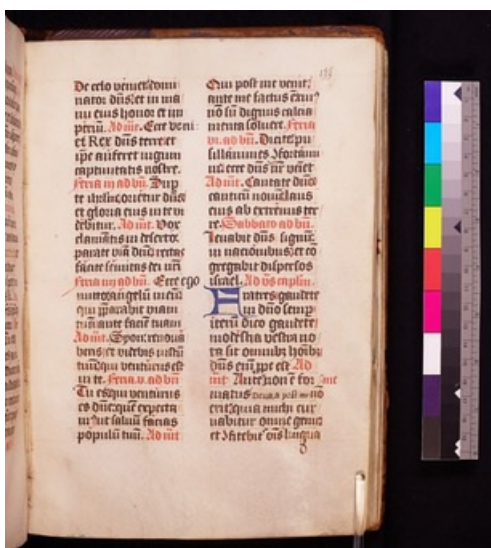 De celo veniet domi
nator dñs et in ma
nu eius honor et im
periū. Ad m̄t. Ecce veni
et Rex dñs terre et
ip̄e auferet iugum
captiuitatis nostre.
Feria iij ad bñ. Sup
te ihrlm orietur dñs
et gloria eius in te vi
debitur. Ad m̄t. Vox
clamantis in deserto
parate viā dñi rectas
facite semitas dei nr̄i
Feria iiij ad bñ. Ecce ego
mitto angelū meū
qui p̄parabit viam
tuā ante faciē tuam
Ad m̄t. Syon renoua
beris et videbis iustū
tuū qui venturus est
in te. Feria v. ad bñ
Tu es qui venturus
es dñe quē expecta
m⁹ ut saluū facias
populū tuū. Ad m̄t
Qui post me venit
ante me factus est cui⁹
nō sū dignus calcia
menta soluere. Feria
vi. ad bñ. Dicite pu
sillanimes ꝯfortami
ni ecce dñs nr̄ veniet
Ad m̄t. Cantate dño
canticū nouū laus
eius ab extremis ter
re. Sabbato ad bñ.
Leuabit dñs signū
in nacionibus et cō
gregabit dispersos
israel. Ad v̄s caplm.
Fratres gaudete
in dño semp
iterū dico gaudete
modestia vestra no
ta sit omnibus hoībus
dñs enī ꝓpe est Ad
m̄t Ante me nō ē for
matus deus et post me nō
erit quia michi cur
uabitur omne genu
et ꝯfitebit̄ oīs lingua